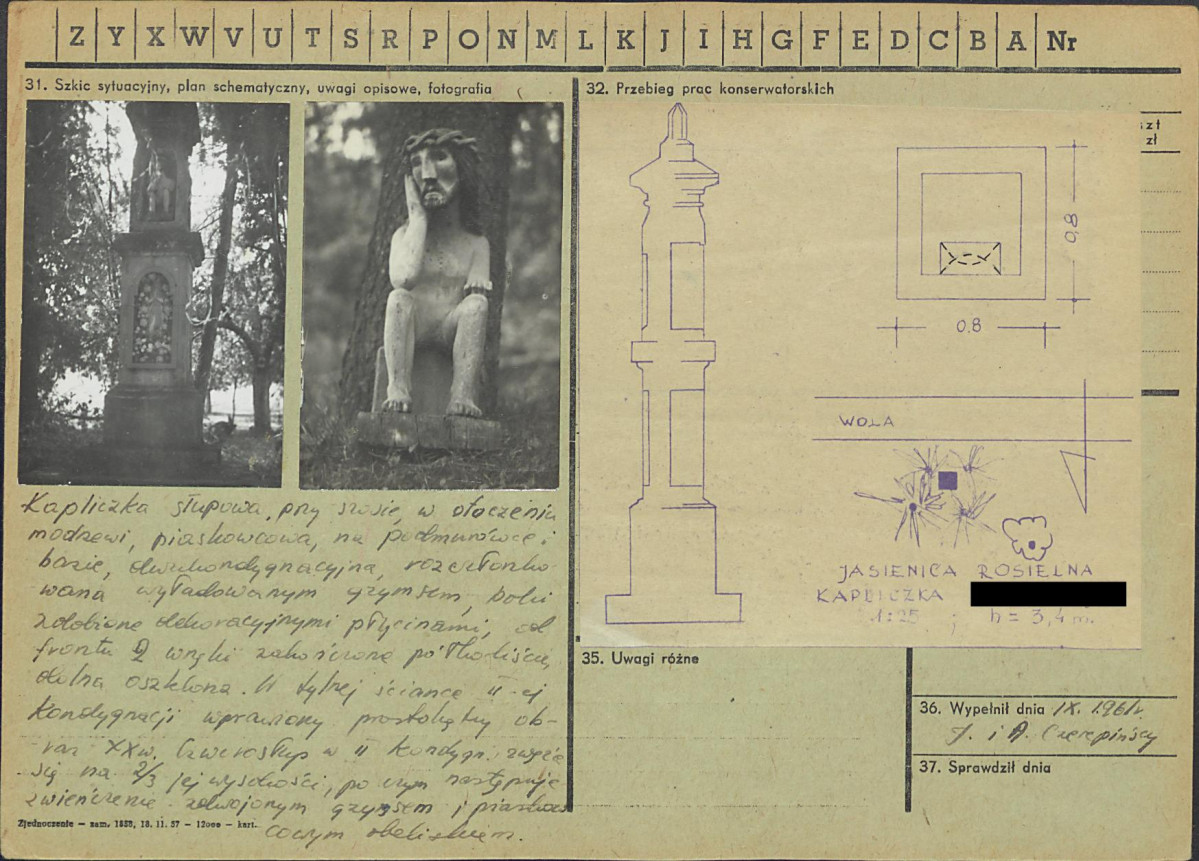 Z Y X W V U T S R P O N M L K J I H G F E D C B A Nr
31. Szkic sytuacyjny, plan schematyczny, uwagi opisowe, fotografia
32. Przebieg prac konserwatorskich
zł
zł
0,8
0,8
WOLA
JASIENICA ROSIELNA
KAPLICZKA
1:25 ; h = 3,4 m.
Kapliczka słupowa, przy szosie, w otoczeniu
modrzewi, piaskowcowa, na podmurówce i
bazie, dwukondygnacyjna, rozczłonko-
wana wyładowanym gzymsem, boki
zdobione dekoracyjnymi płycinami, od
frontu 2 wnęki zakończone półkoliście,
dolna oszklona. W tylnej ściance II-ej
kondygnacji wprawiony prostokątny ob-
raz XX w. Czworosłup w II kondygn. zwęża
się na 2/3 jej wysokości, po czym następuje
zwieńczenie zdwojonym gzymsem i piaskow
cowym obeliskiem.
Zjednoczenie — zam. 1838, 18. 11. 57 — 12000 — kart.
35. Uwagi różne
36. Wypełnił dnia IX. 1961 r.
J. i A. Czerepińscy
37. Sprawdził dnia